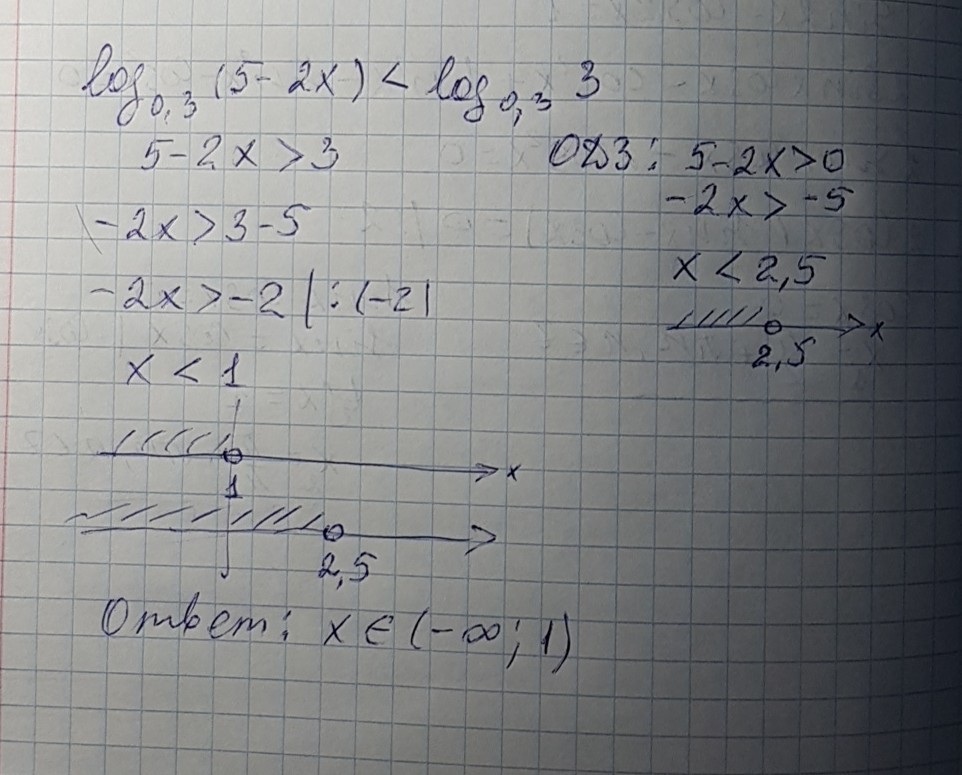 log₀,₃ (5-2x) < log₀,₃ 3
5-2x>3
ОДЗ: 5-2x>0
-2x>3-5
-2x>-5
-2x>-2 | :(-2)
x<2,5
x<1
x
2,5
x
1
2,5
Ответ: x∈(-∞; 1)